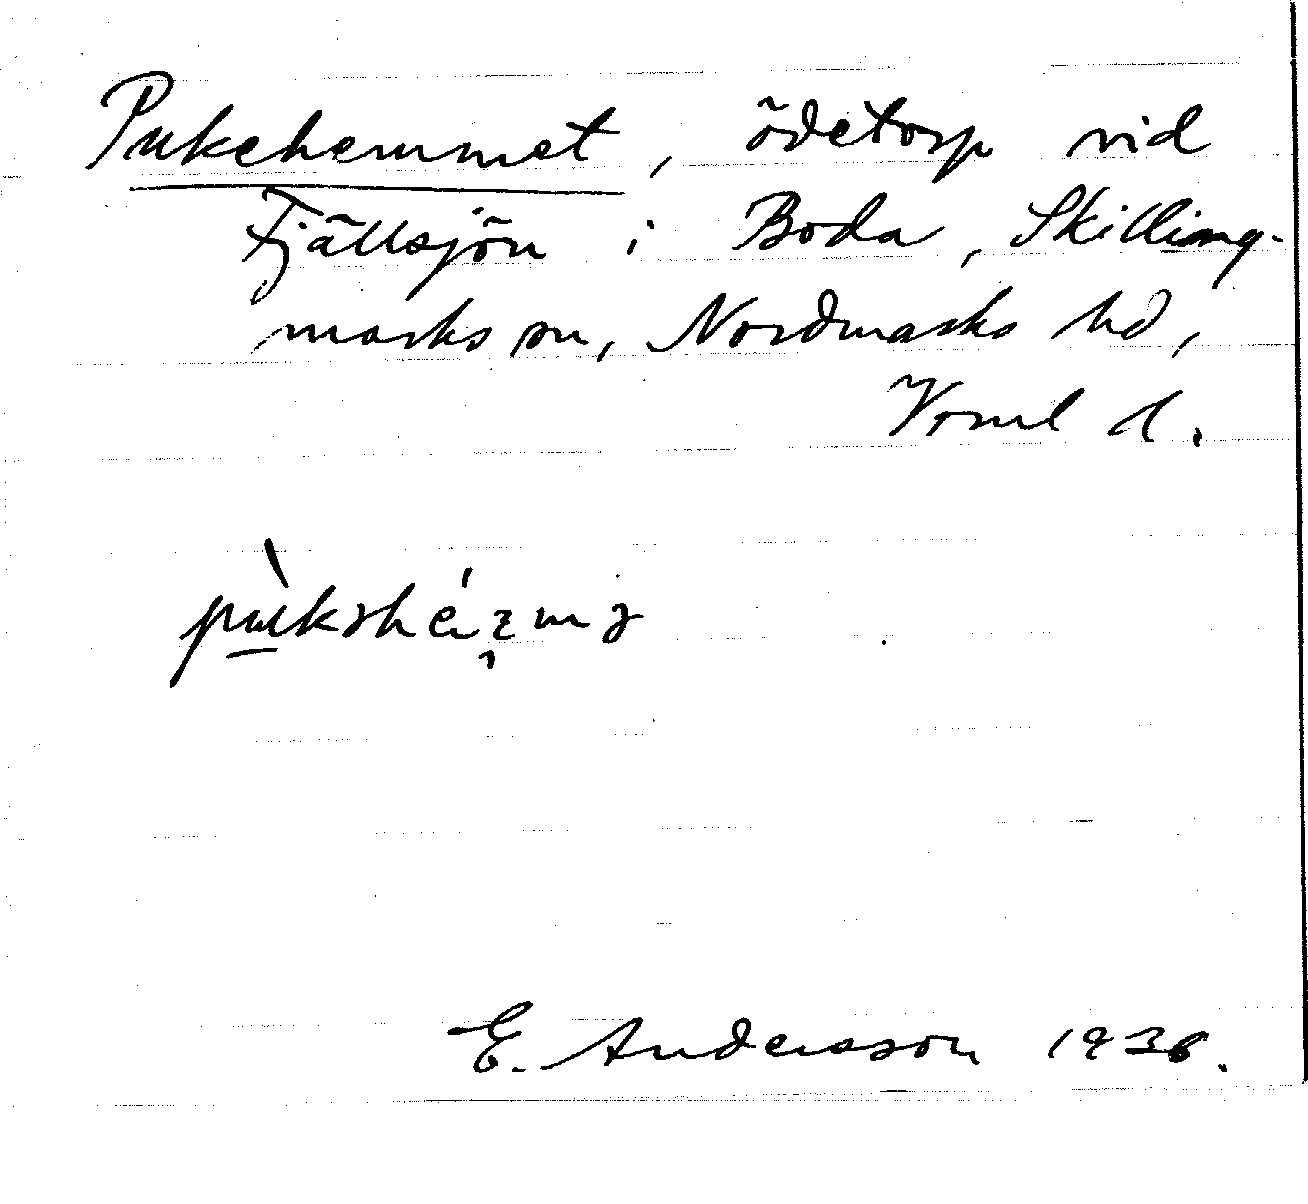 Pukehemmet, ödetorp vid
Fjällsjön i Boda, Skillings-
marks sn, Nordmarks hd,
Vrml d.
E. Andersson 1936.